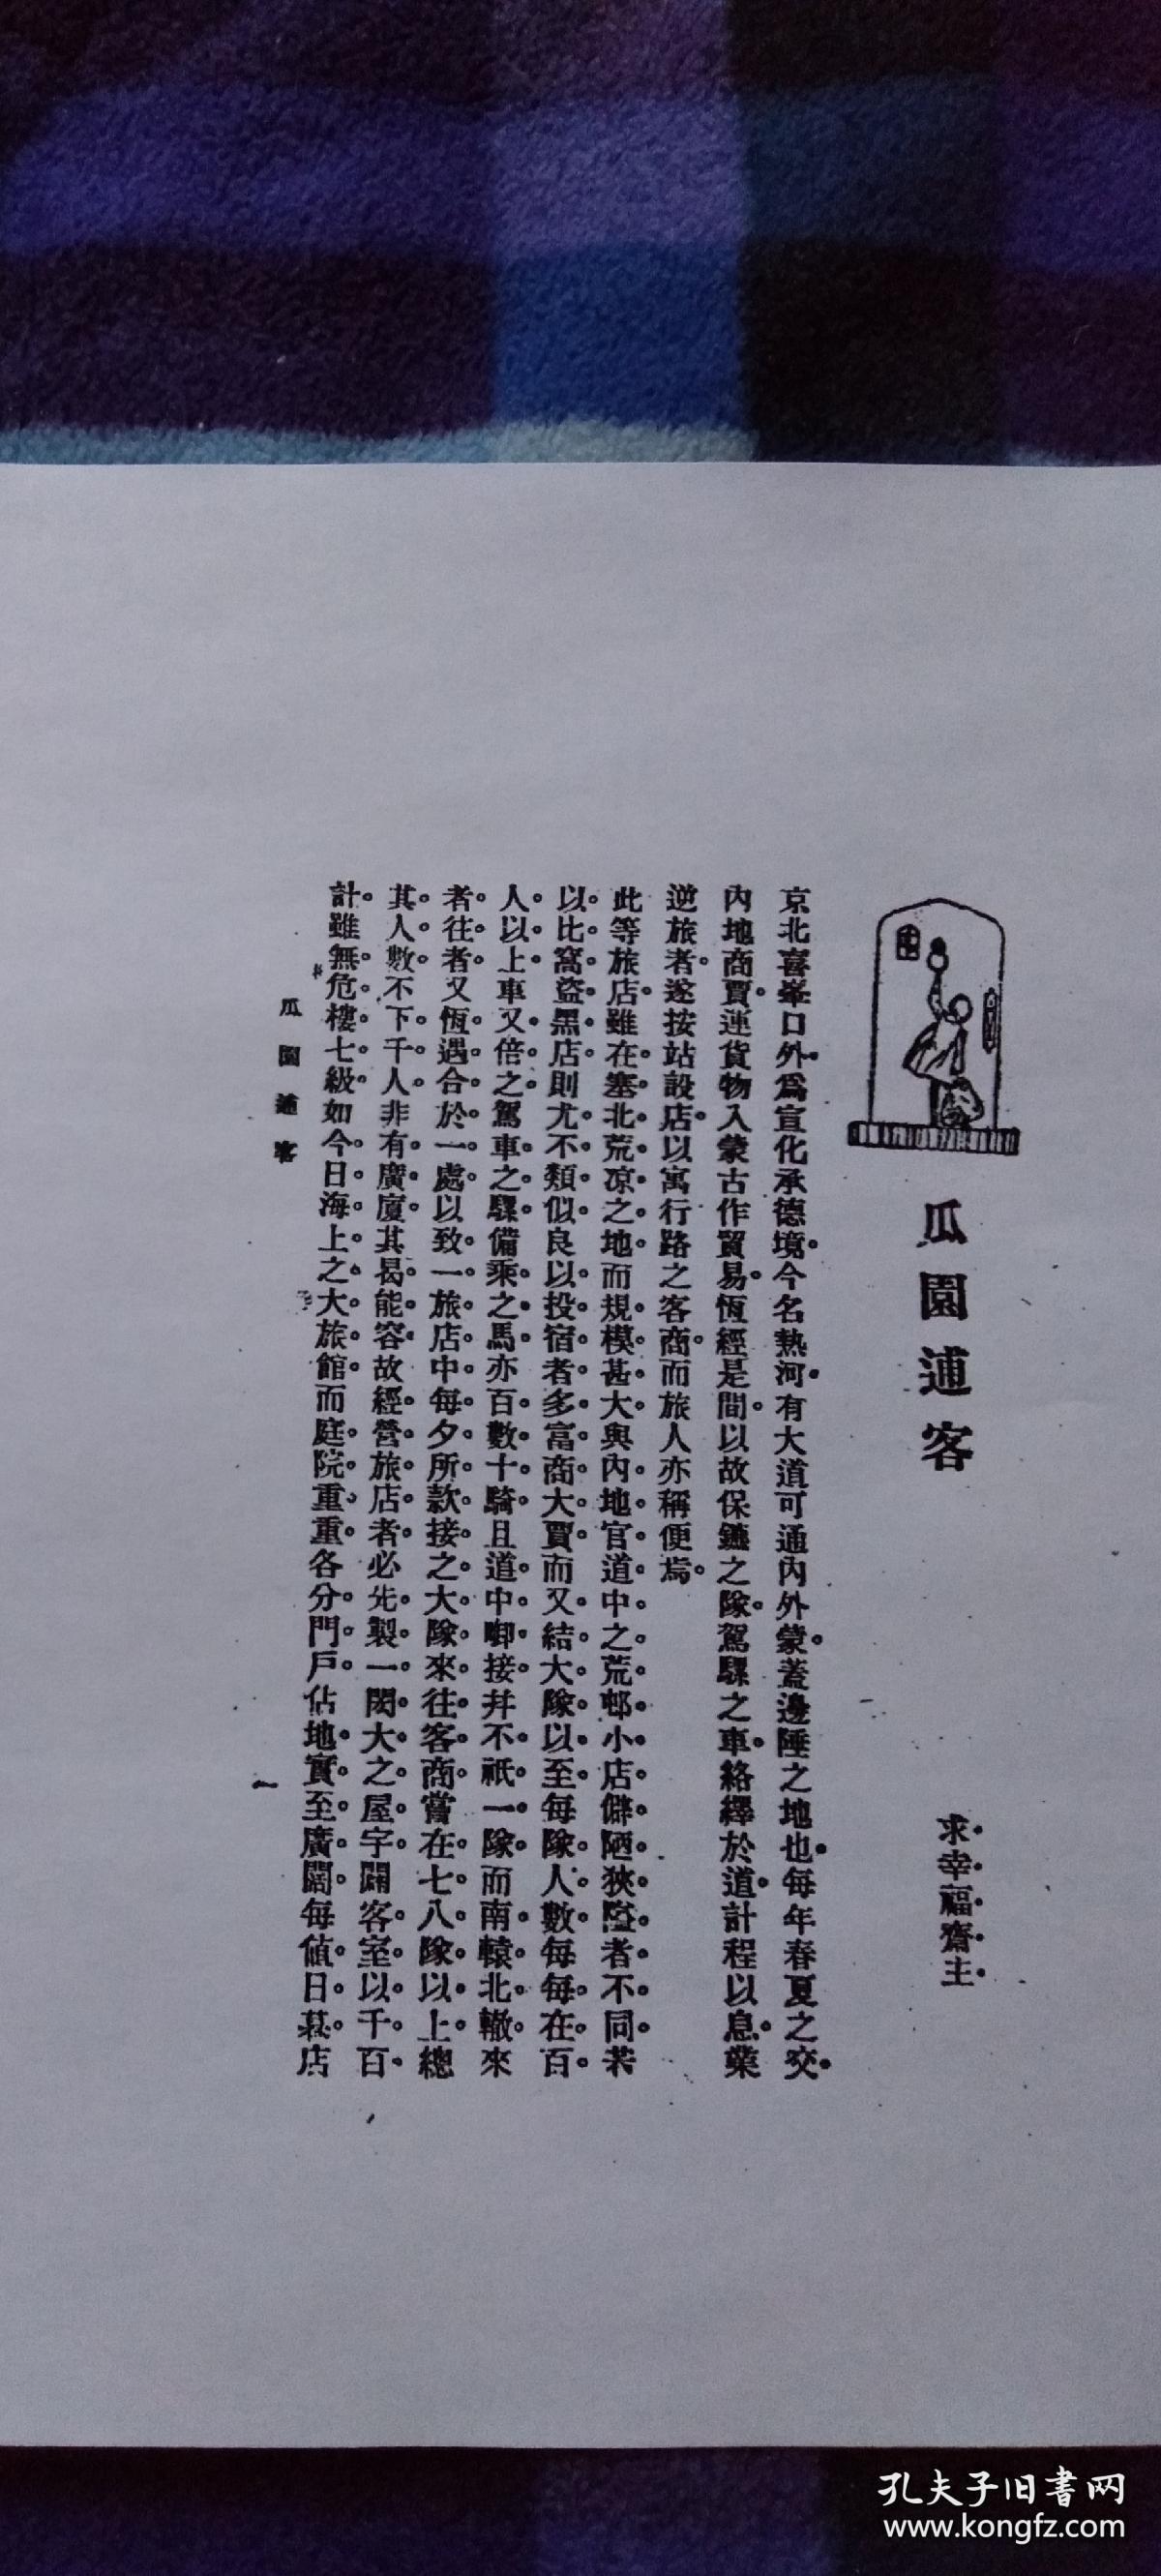 瓜園逋客
求幸福齋主
京北喜峯口外。爲宣化承德境。今名熱河。有大道可通內外蒙。蓋邊陲之地也。每年春夏之交。
內地商賈。運貨物入蒙古作貿易。恆經是間。以故保鑣之隊。駕騾之車。絡繹於道。計程以息。業
逆旅者。遂按站設店。以寓行路之客商。而旅人亦稱便焉。
此等旅店。雖在塞北荒凉之地。而規模甚大。與內地官道中之荒邨小店。僻陋狹隘者不同。若
以比窩盜黑店。則尤不類似。良以投宿者多富商大賈。而又結大隊以至。每隊人數每每在百
人以上。車又倍之。駕車之騾。備乘之馬。亦百數十騎。且道中啣接。幷不祇一隊。而南轅北轍。來
者往者。又恆遇合於一處。以致一旅店中。每夕所款接之大隊來往客商。嘗在七八隊以上。總
其人數。不下千人。非有廣廈。其曷能容。故經營旅店者。必先製一閎大之屋宇。闢客室以千百
計。雖無危樓七級。如今日海上之大旅館。而庭院重重。各分門戶。佔地實至廣闊。每値日暮。店
瓜園逋客
一
孔夫子旧书网
www.kongfz.com